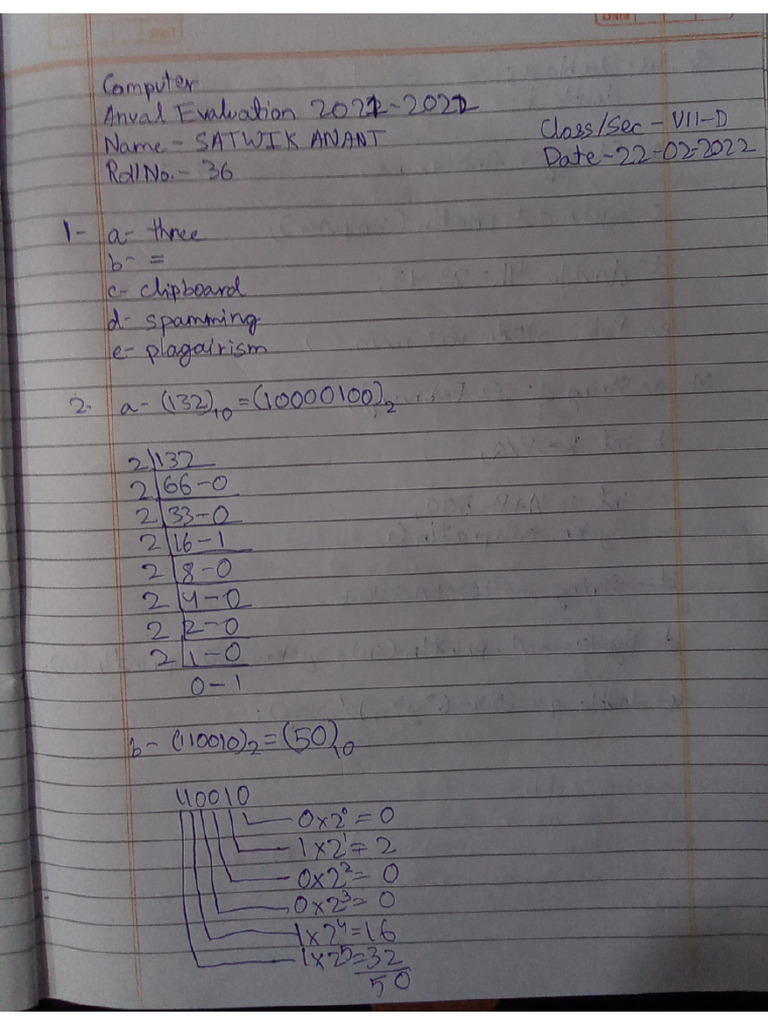 Computer
Anual Evaluation 2021-2022
Name - SATWIK ANANT
Class/Sec - VII-D
Roll No. - 36
Date - 22-02-2022
1- a- three
b- =
c- clipboard
d- spamming
e- plagairism
2. a- (132)₁₀ = (10000100)₂
2 | 132
2 | 66 - 0
2 | 33 - 0
2 | 16 - 1
2 | 8 - 0
2 | 4 - 0
2 | 2 - 0
2 | 1 - 0
0 - 1
b- (110010)₂ = (50)₁₀
110010
0×2⁰ = 0
1×2¹ = 2
0×2² = 0
0×2³ = 0
1×2⁴ = 16
1×2⁵ = 32
50